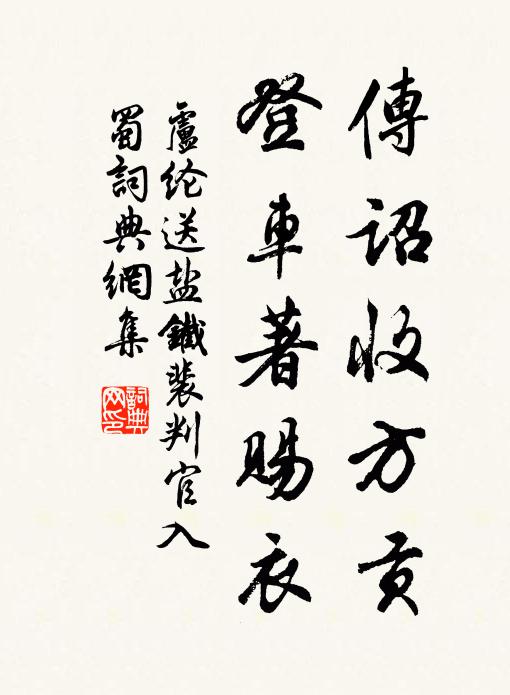 傳詔收方貢
登車著賜衣
盧纶送盐鐵裴判官入
蜀詞典網集
詞典
网印